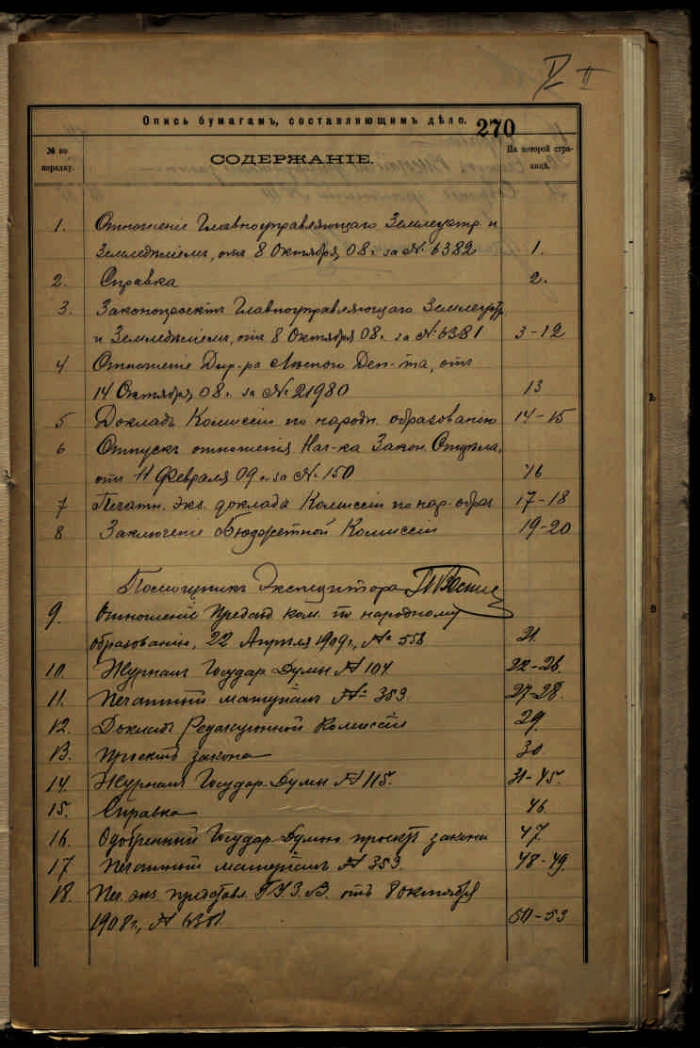 II
Опись бумагамъ, составляющимъ дѣло. 270
№ по порядку.
СОДЕРЖАНІЕ.
На которой стра-
ницѣ.
1. Отношеніе Главноуправляющаго Землеустр. и
Земледѣліемъ, отъ 8 Октября 08 г. за № 6382 1.
2. Справка 2.
3. Законопроектъ Главноуправляющаго Землеустр.
и Земледѣліемъ, отъ 8 Октября 08 г. за № 6381 3-12
4 Отношеніе Дир-ра Лѣсного Деп-та, отъ
14 Октября 08 г. за № 21980 13
5 Докладъ Комиссіи по народн. образованію 14-15
6 Отпускъ отношенія Нач-ка Закон. Отдѣла,
отъ 11 Февраля 09 г. за № 150 16
7 Печатн. экз. доклада Комиссіи по нар. образ 17-18
8 Заключеніе бюджетной Комиссіи 19-20
Помощникъ Экспедитора
9. Отношеніе Предсѣд. ком. по народному
образованію, 22 Апрѣля 1909 г., № 558 21.
10. Журналъ Государ. Думы № 104 22-26
11. Печатный матеріалъ № 353 27-28.
12. Докладъ Редакціонной Комиссіи 29.
13. Проектъ закона 30
14. Журналъ Государ. Думы № 115. 31-45.
15. Справка 46.
16. Одобренный Государ. Думою проектъ закона 47.
17 Печатный матеріалъ № 353 48-49.
18. Печ. экз. представл. Г.У.З. и З. отъ 8 октября
1908 г., № 6381. 50-53